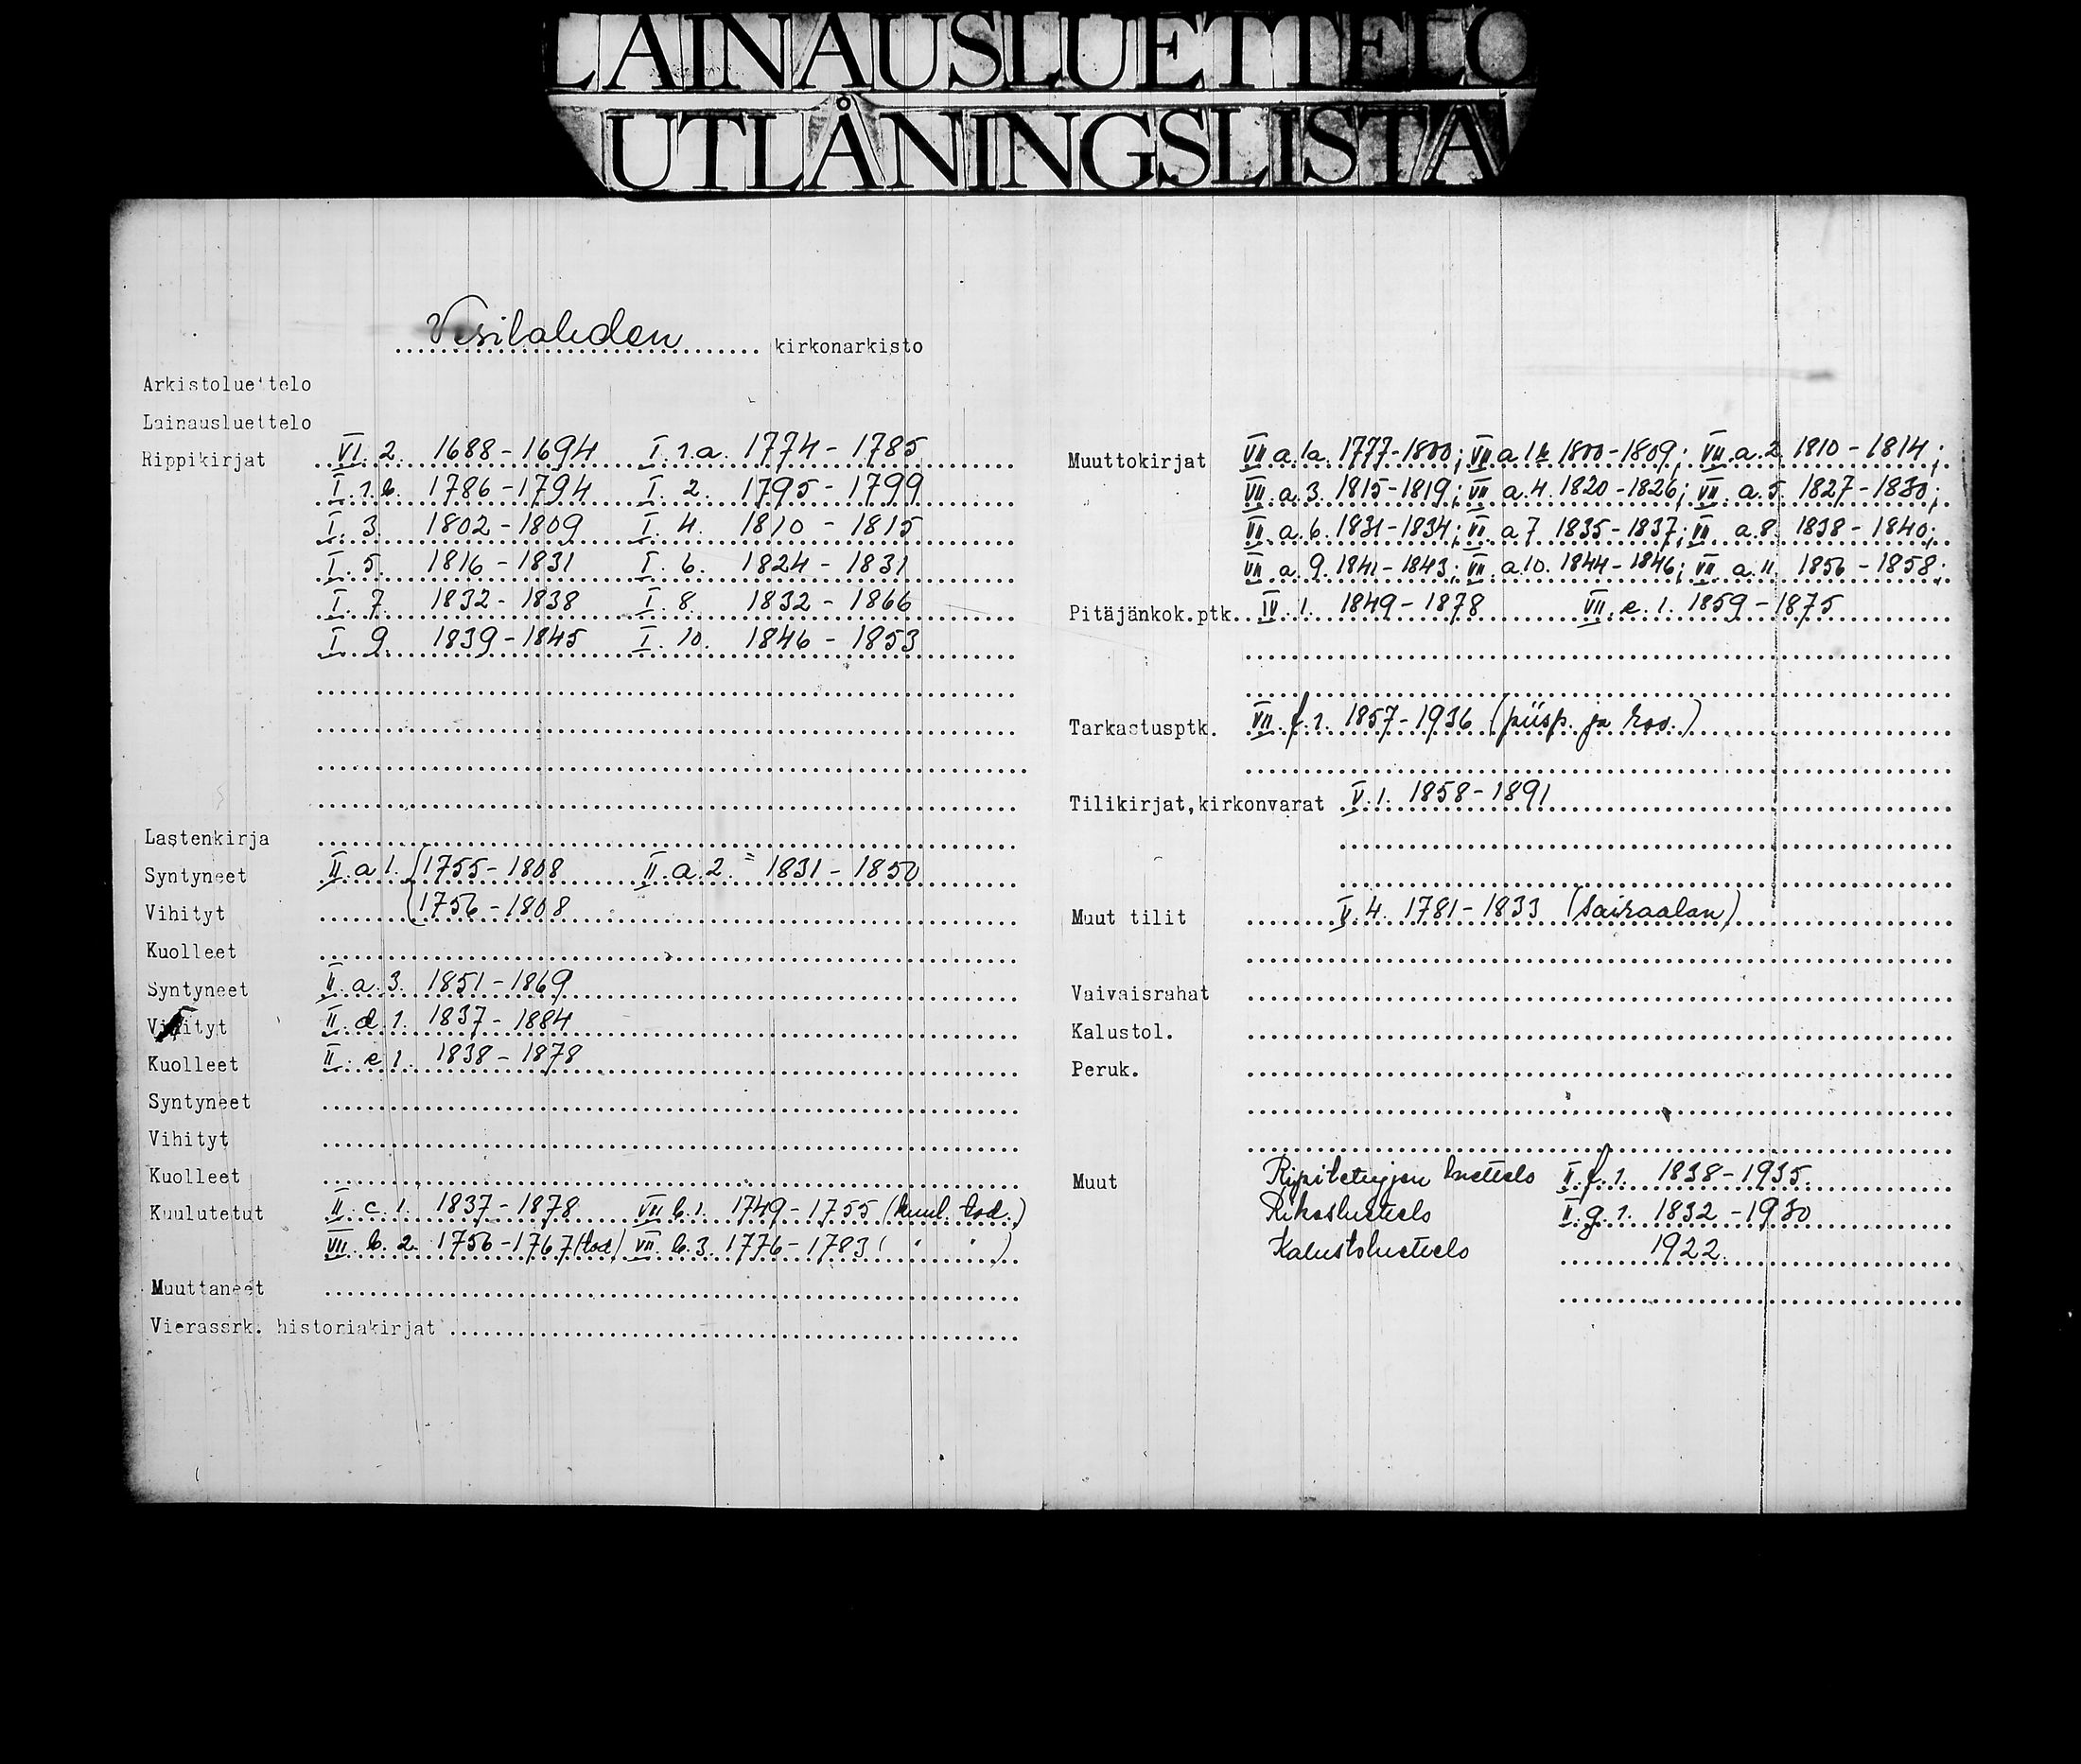 LAINAUSLUETTELO
UTLÅNINGSLISTA
Vesilahden kirkonarkisto
Arkistoluettelo
Lainausluettelo
Rippikirjat VI. 2. 1688-1694 I. 1.a. 1774-1785
I. 1.b. 1786-1794 I. 2. 1795-1799
I. 3. 1802-1809 I. 4. 1810-1815
I. 5. 1816-1831 I. 6. 1824-1831
I. 7. 1832-1838 I. 8. 1832-1866
I. 9. 1839-1845 I. 10. 1846-1853
Lastenkirja
Syntyneet II. a 1. 1755-1808 II. a. 2. 1831-1850
Vihityt 1756-1808
Kuolleet
Syntyneet II. a. 3. 1851-1869
Vihityt II. d. 1. 1837-1884
Kuolleet II. e 1. 1838-1878
Syntyneet
Vihityt
Kuolleet
Kuulutetut II. c. 1. 1837-1878 VII b. 1. 1749-1755 (kuul. tod.)
VII. b. 2. 1756-1767 (tod) VII. b. 3. 1776-1783 ( " " )
Muuttaneet
Vierassrk. historiakirjat
Muuttokirjat VII a. 1a. 1777-1800; VII a 1b 1800-1809; VII. a. 2. 1810-1814;
VII. a. 3. 1815-1819; VII a. 4. 1820-1826; VII. a. 5. 1827-1830;
VII. a. 6. 1831-1834; VII. a 7 1835-1837; VII. a. 8. 1838-1840;
VII. a. 9. 1841-1843; VII. a. 10. 1844-1846; VII. a. 11. 1856-1858;
Pitäjänkok.ptk. IV. 1. 1849-1878 VII. e. 1. 1859-1875
Tarkastusptk. VII. f. 1. 1857-1936 (piisp. ja rov.)
Tilikirjat,kirkonvarat V. 1. 1858-1891
Muut tilit V. 4. 1781-1833 (Sairaalan)
Vaivaisrahat
Kalustol.
Peruk.
Muut Ripitettujen luettelo II. f. 1. 1838-1935.
Rikosluettelo II. g. 1. 1832-1930
Kalustoluettelo 1922.